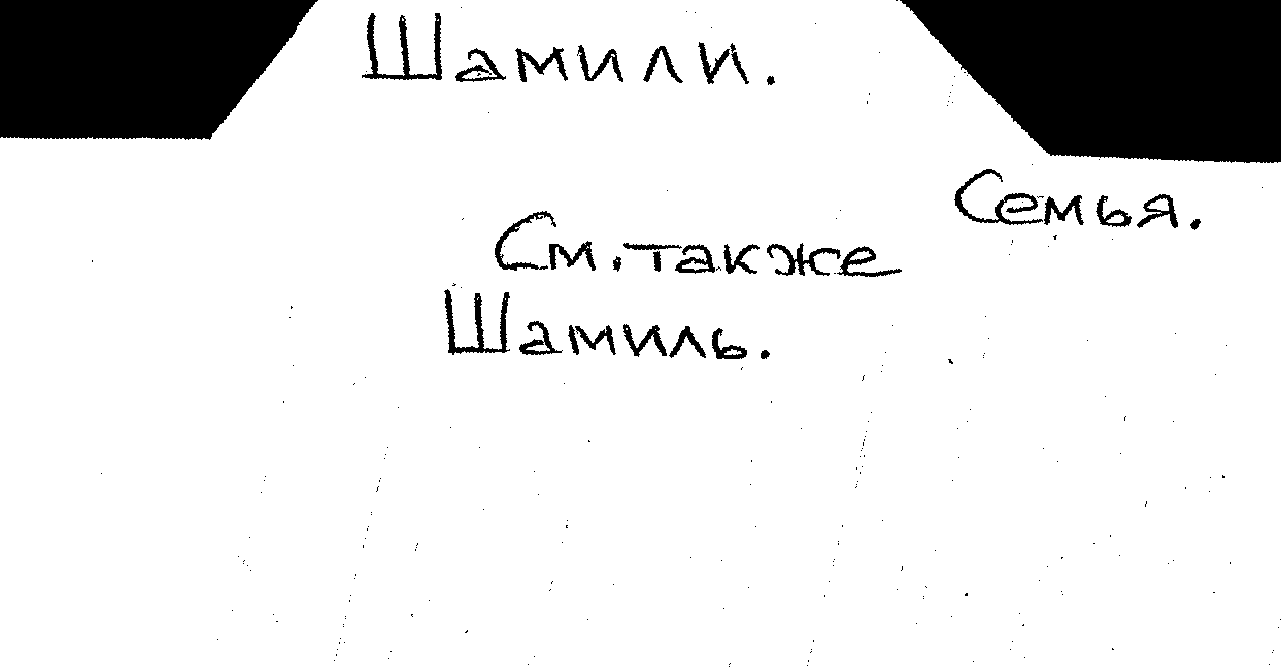 Шамили.
Семья.
См. также
Шамиль.